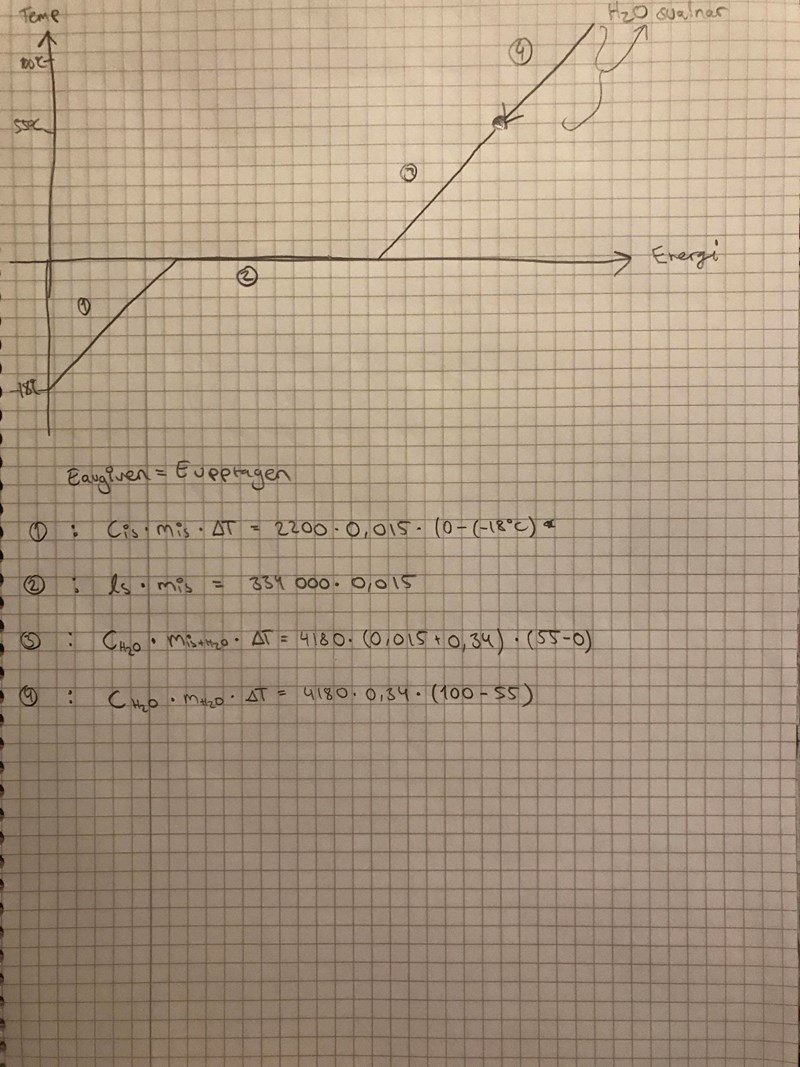 Temp
H2O svalnar
100°C
④
55°C
③
Energi
②
①
-18°C
Eavgiven = Eupptagen
① : Cis · mis · ΔT = 2200 · 0,015 · (0-(-18°C)
② : ls · mis = 334 000 · 0,015
③ : CH2O · mis+H2O · ΔT = 4180 · (0,015 + 0,34) · (55-0)
④ : CH2O · mH2O · ΔT = 4180 · 0,34 · (100-55)